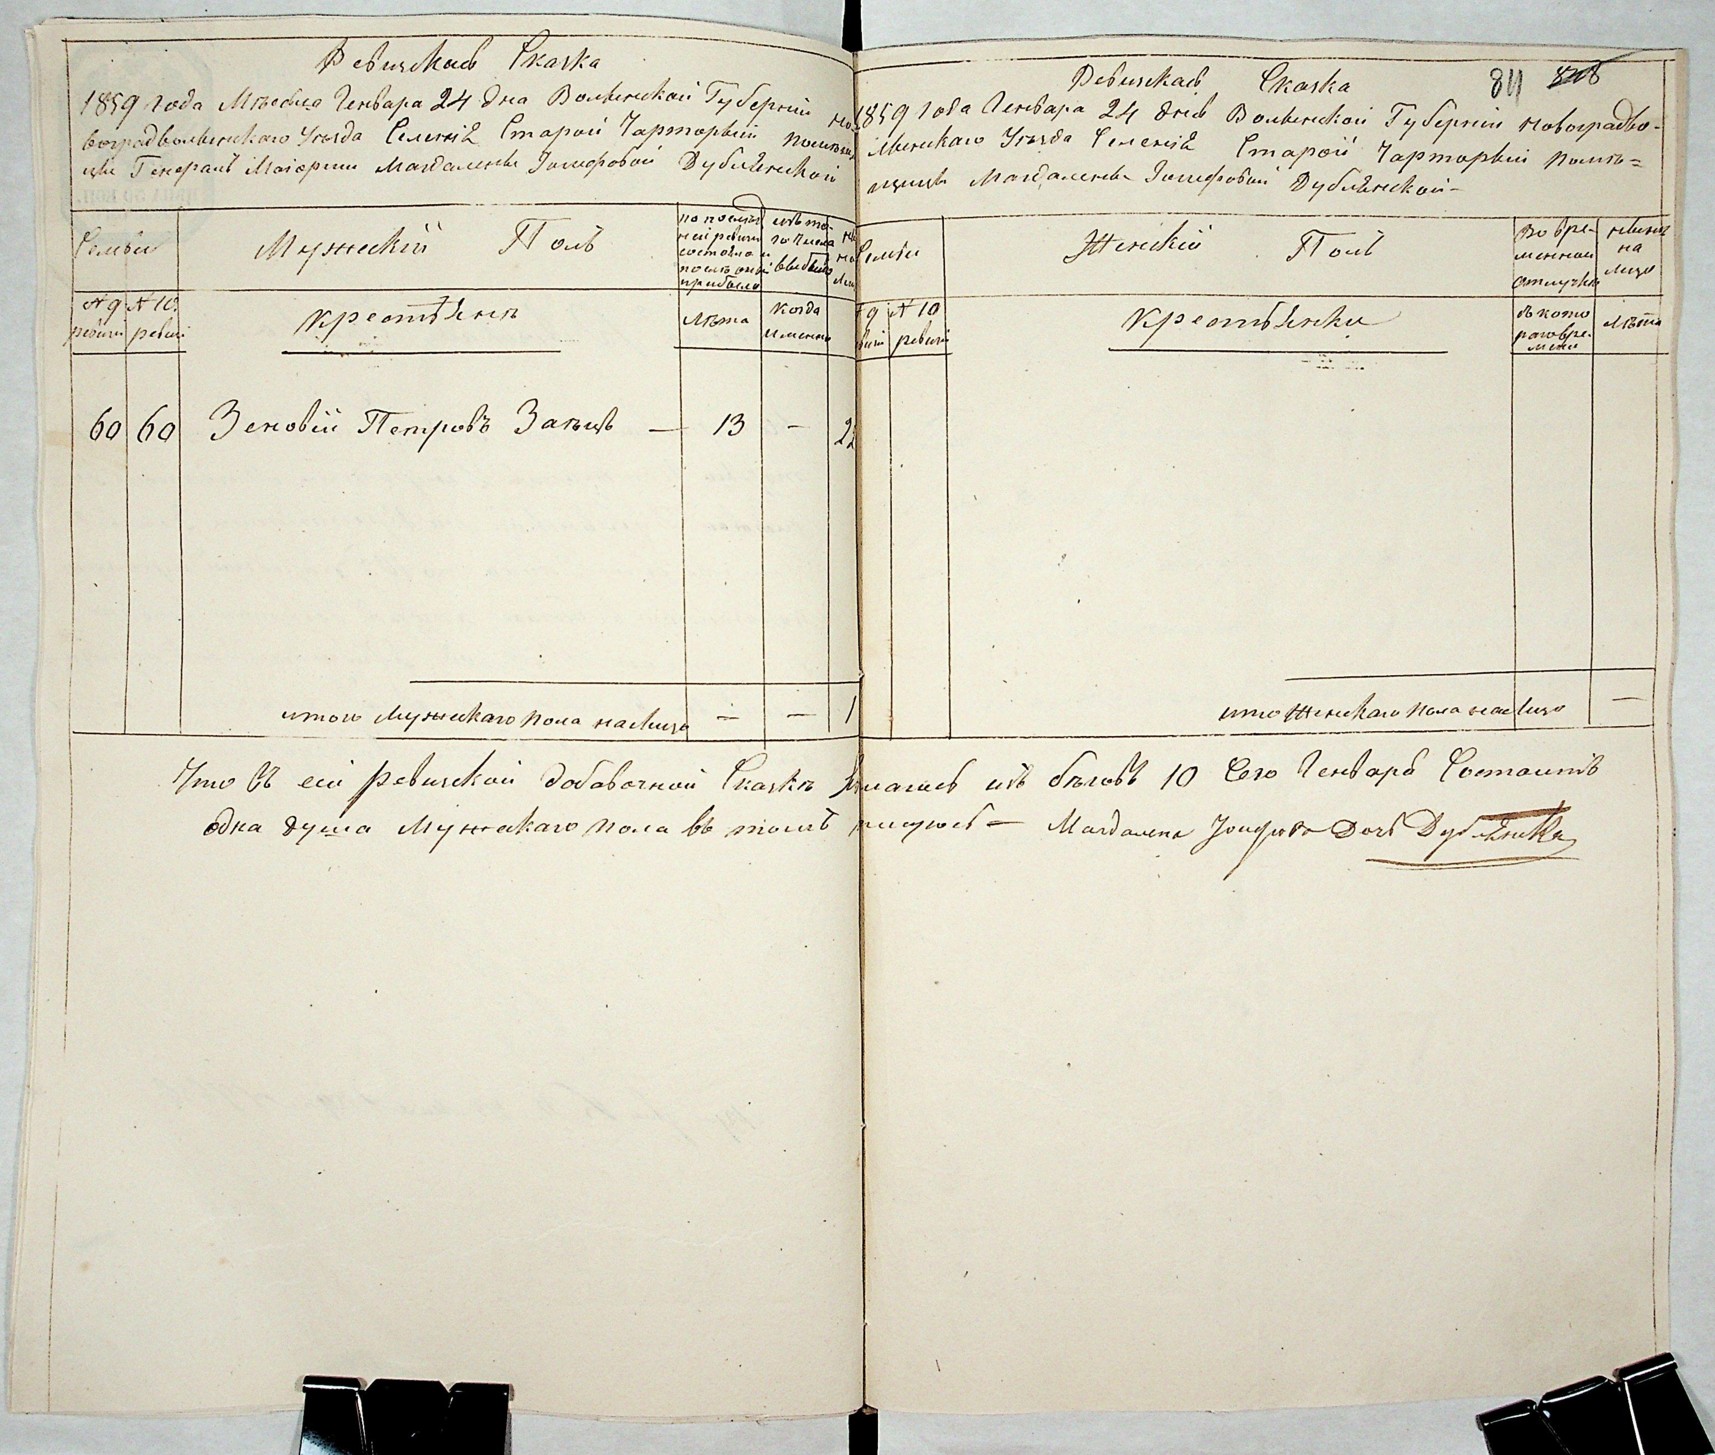 Ревизская Сказка
1859 года Месяца Генваря 24 дня Волынской Губернии Но-
воградволынскаго Уезда Селенія Старой Чарторыи помещи
цы Генералъ Маіорши Магдалены Іосифовой Дублянской
Семьи
Мужескій Полъ
по послед
ней ревизіи
состояло и
после оной
прибыло
изъ то-
го числа
выбыло
№ 9 ревизіи
№ 10 ревизіи
Крестьяне
Лѣта
когда
именно
60 60 Зеновій Петровъ Заецъ — 13 — 22
итого мужескаго пола налицо — — 1
84 828
Ревизская Сказка
1859 года Генваря 24 дня Волынской Губерніи Новоградво-
лынскаго Уезда Селенія Старой Чарторыи поме=
щицы Магдалены Іосифовой Дублянской —
Семьи
Женскій Полъ
Во вре-
менной
отлучке
на
лицо
9 № 10
ревизіи
Крестьянки
съ кото
раго вре-
мени
Лѣта
итого Женскаго пола налицо —
Что въ сей ревизской добавочной Сказке изъ беговъ 10 Сего Генваря Состоитъ
одна душа Мужескаго пола въ томъ — Магдалена Іосифова Дочь Дублянская